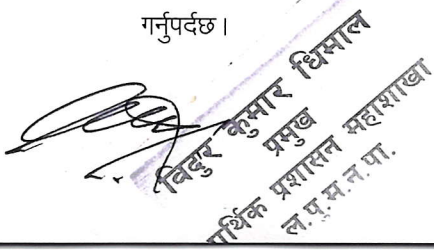 गर्नुपर्दछ।
विदुर कुमार धिमाल
प्रमुख
र्थिक प्रशासन महाशाखा
ल.पु.म.न.पा.